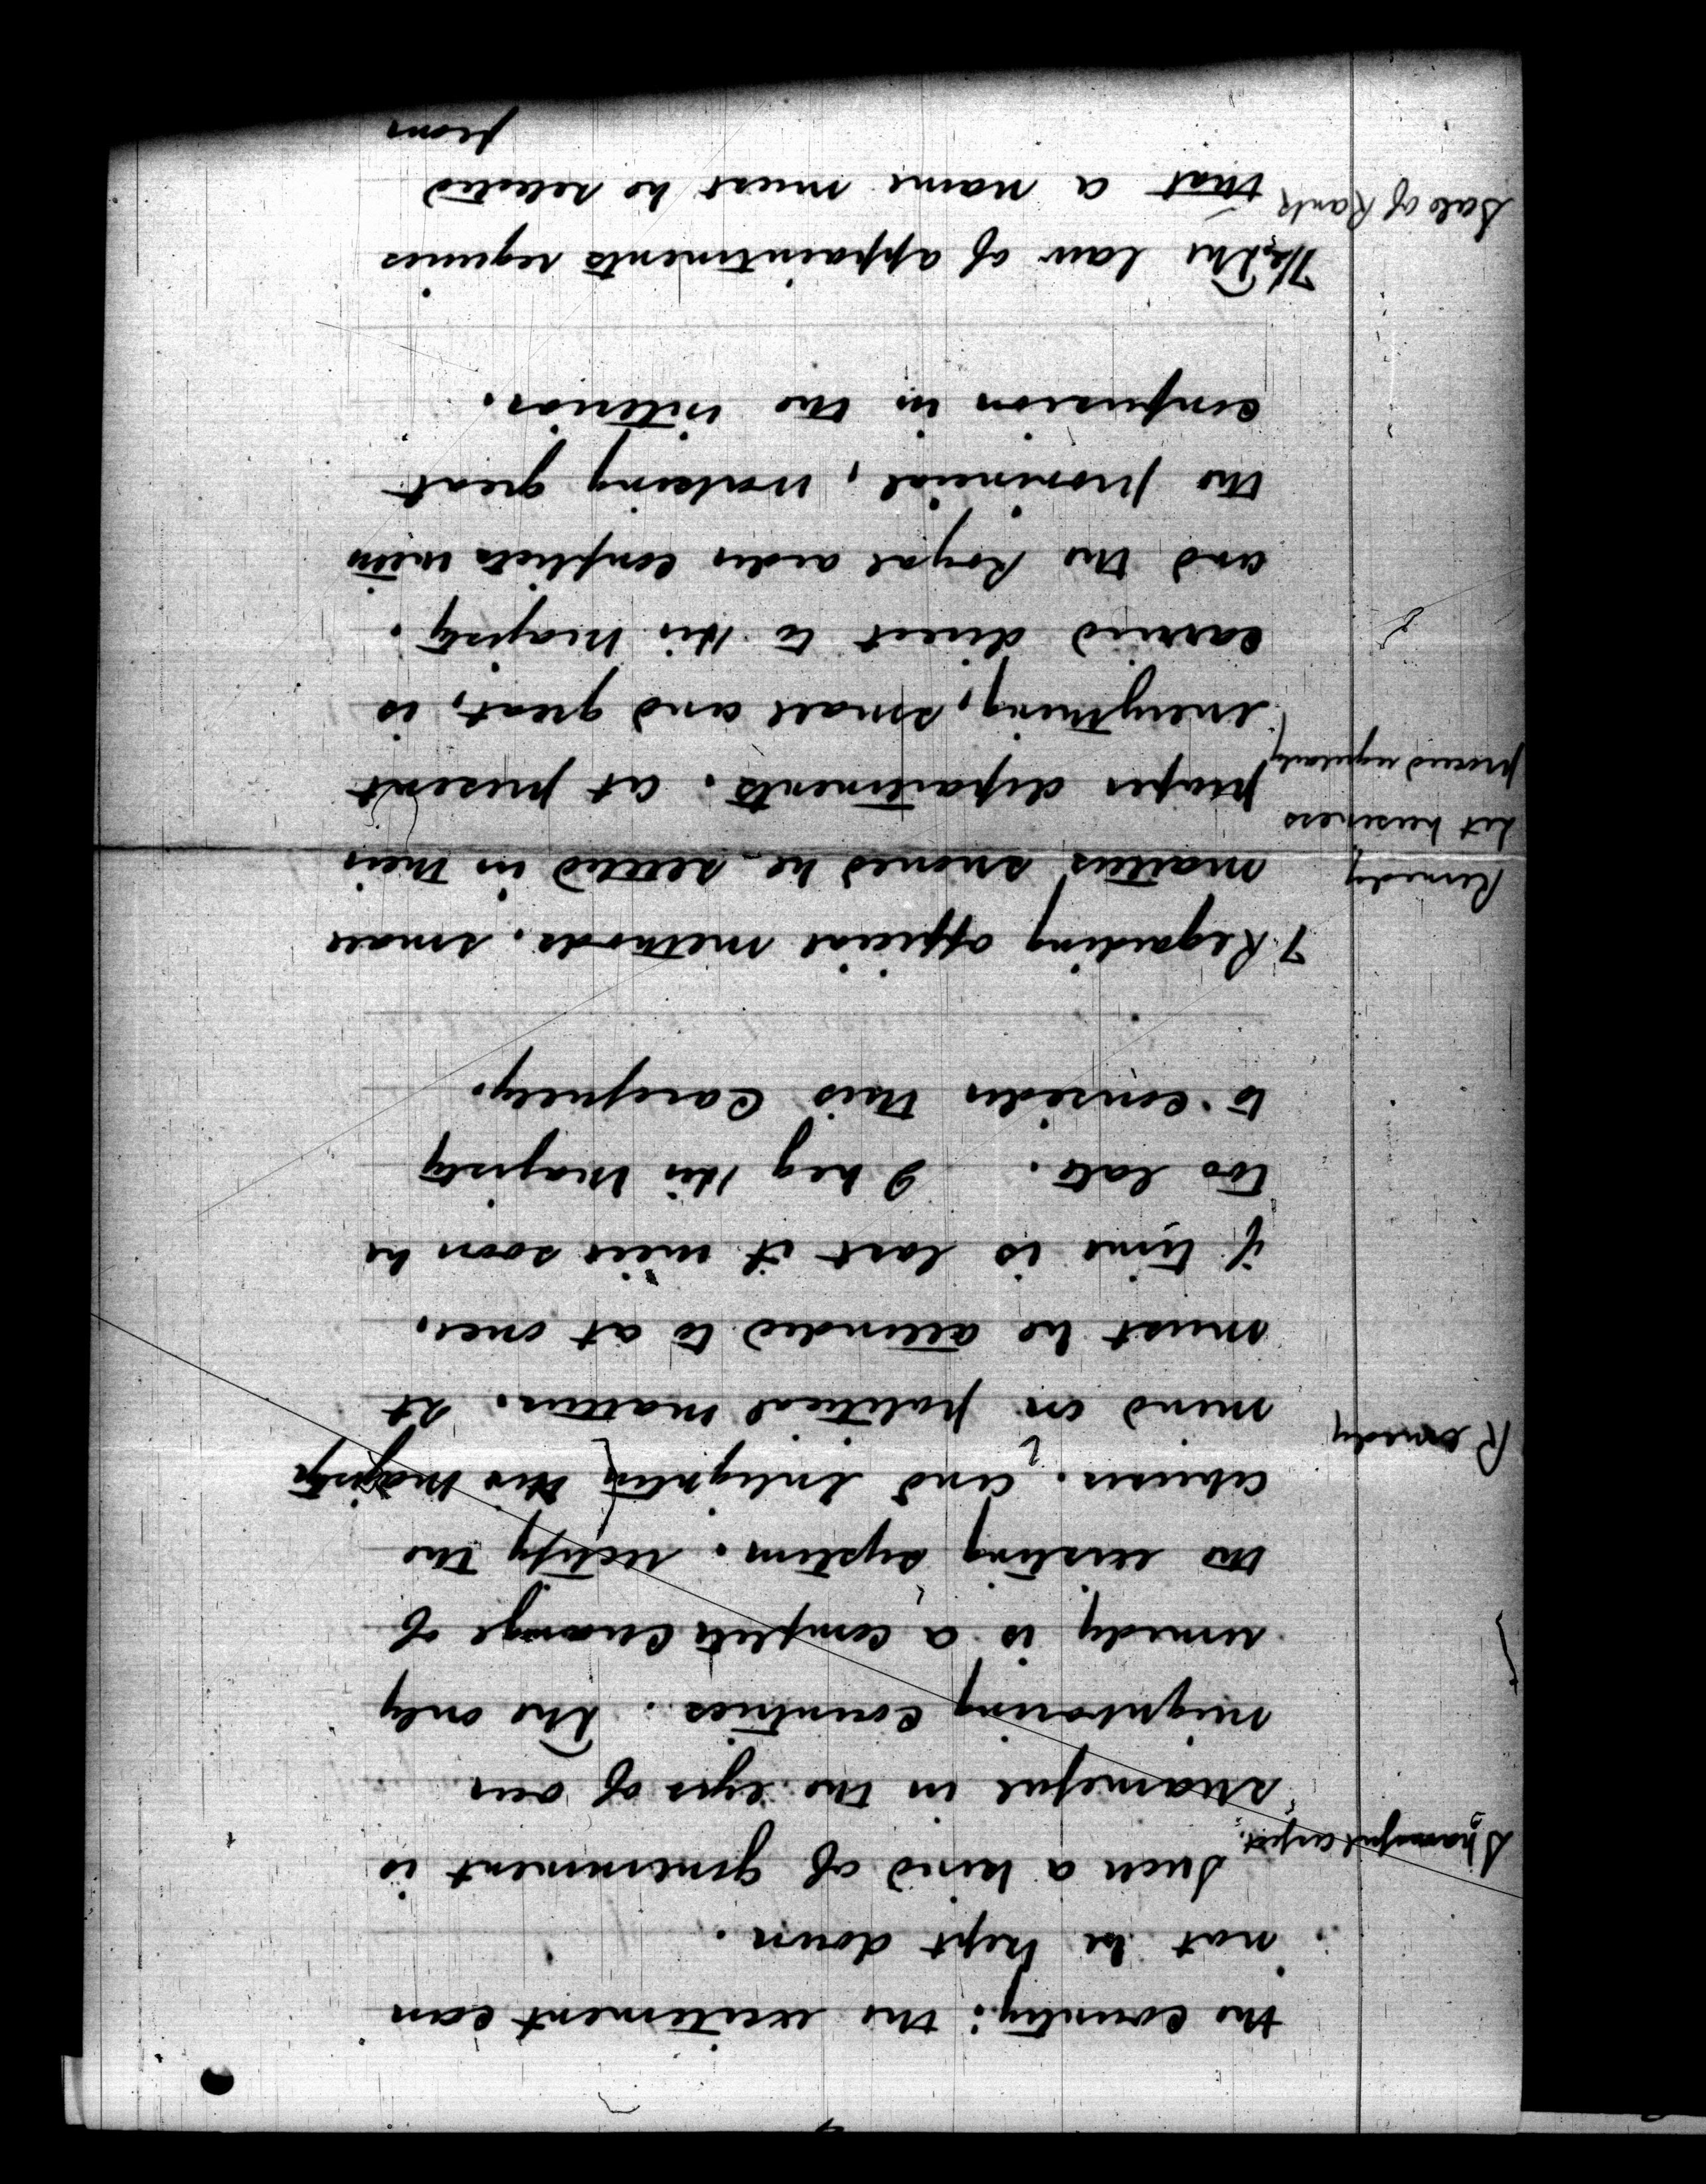 the country: the excitement can
not be kept down.
Shameful aspect.
Such a kind of government is
shameful in the eyes of our
neighboring countries. The only
remedy is a complete change of
the existing system. rectify the
abuses. and enlighten His Majesty's
Remedy
mind on political matters. It
must be attended to at once.
if time is lost it will soon be
too late. I beg His Majesty
to consider this carefully.
7. Regarding official methods. small
Remedy
matters should be settled in their
Let business
proper departments. at present
proceed regularly
everything, small and great, is
carried direct to His Majesty.
and the Royal order conflicts with
the provincial, working great
confusion in the interior.
The law of appointments requires
Sale of Rank
that a name must be selected
from